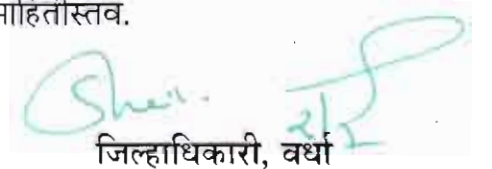 माहितीस्तव.
जिल्हाधिकारी, वर्धा